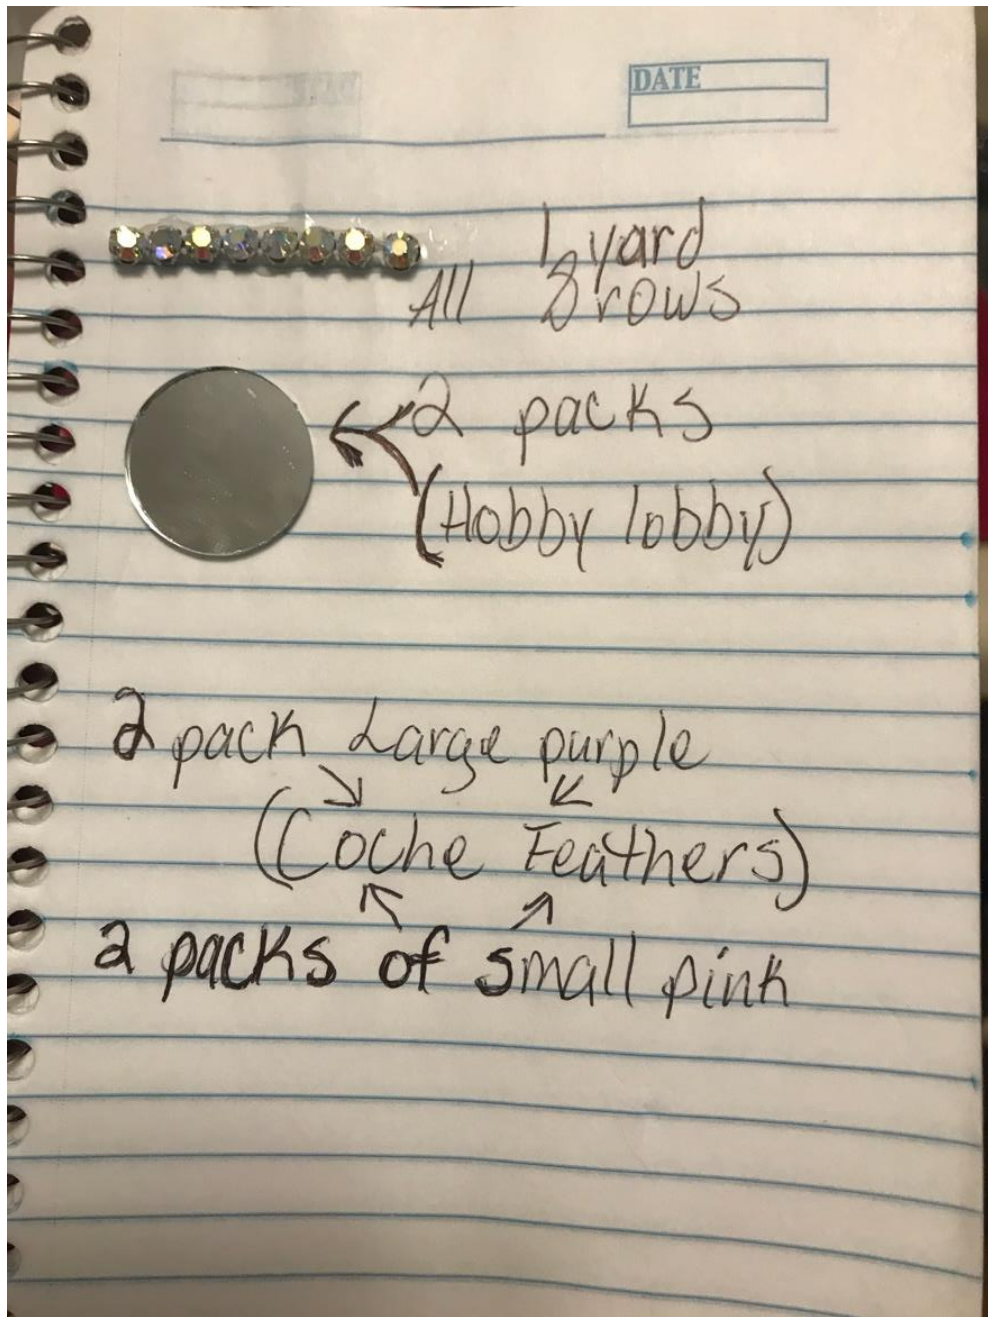 DATE
1 yard
All 8 rows
2 packs
(Hobby lobby)
2 pack Large purple
(Coche Feathers)
2 packs of small pink